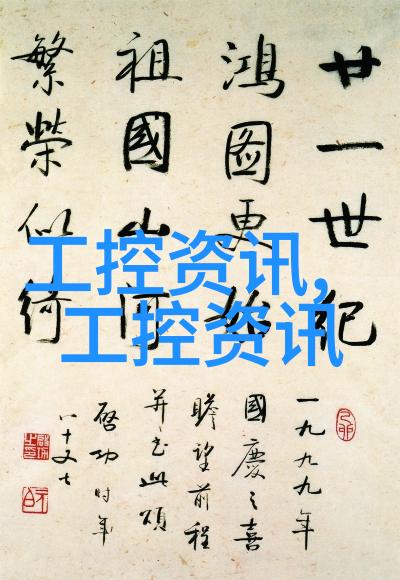 廿一世紀
鴻圖更始
祖國山河
繁榮似綺
一九九九年
國慶之喜
瞻望前程
并書此頌
啓功时年
八十又七
工控资讯,
工控资讯